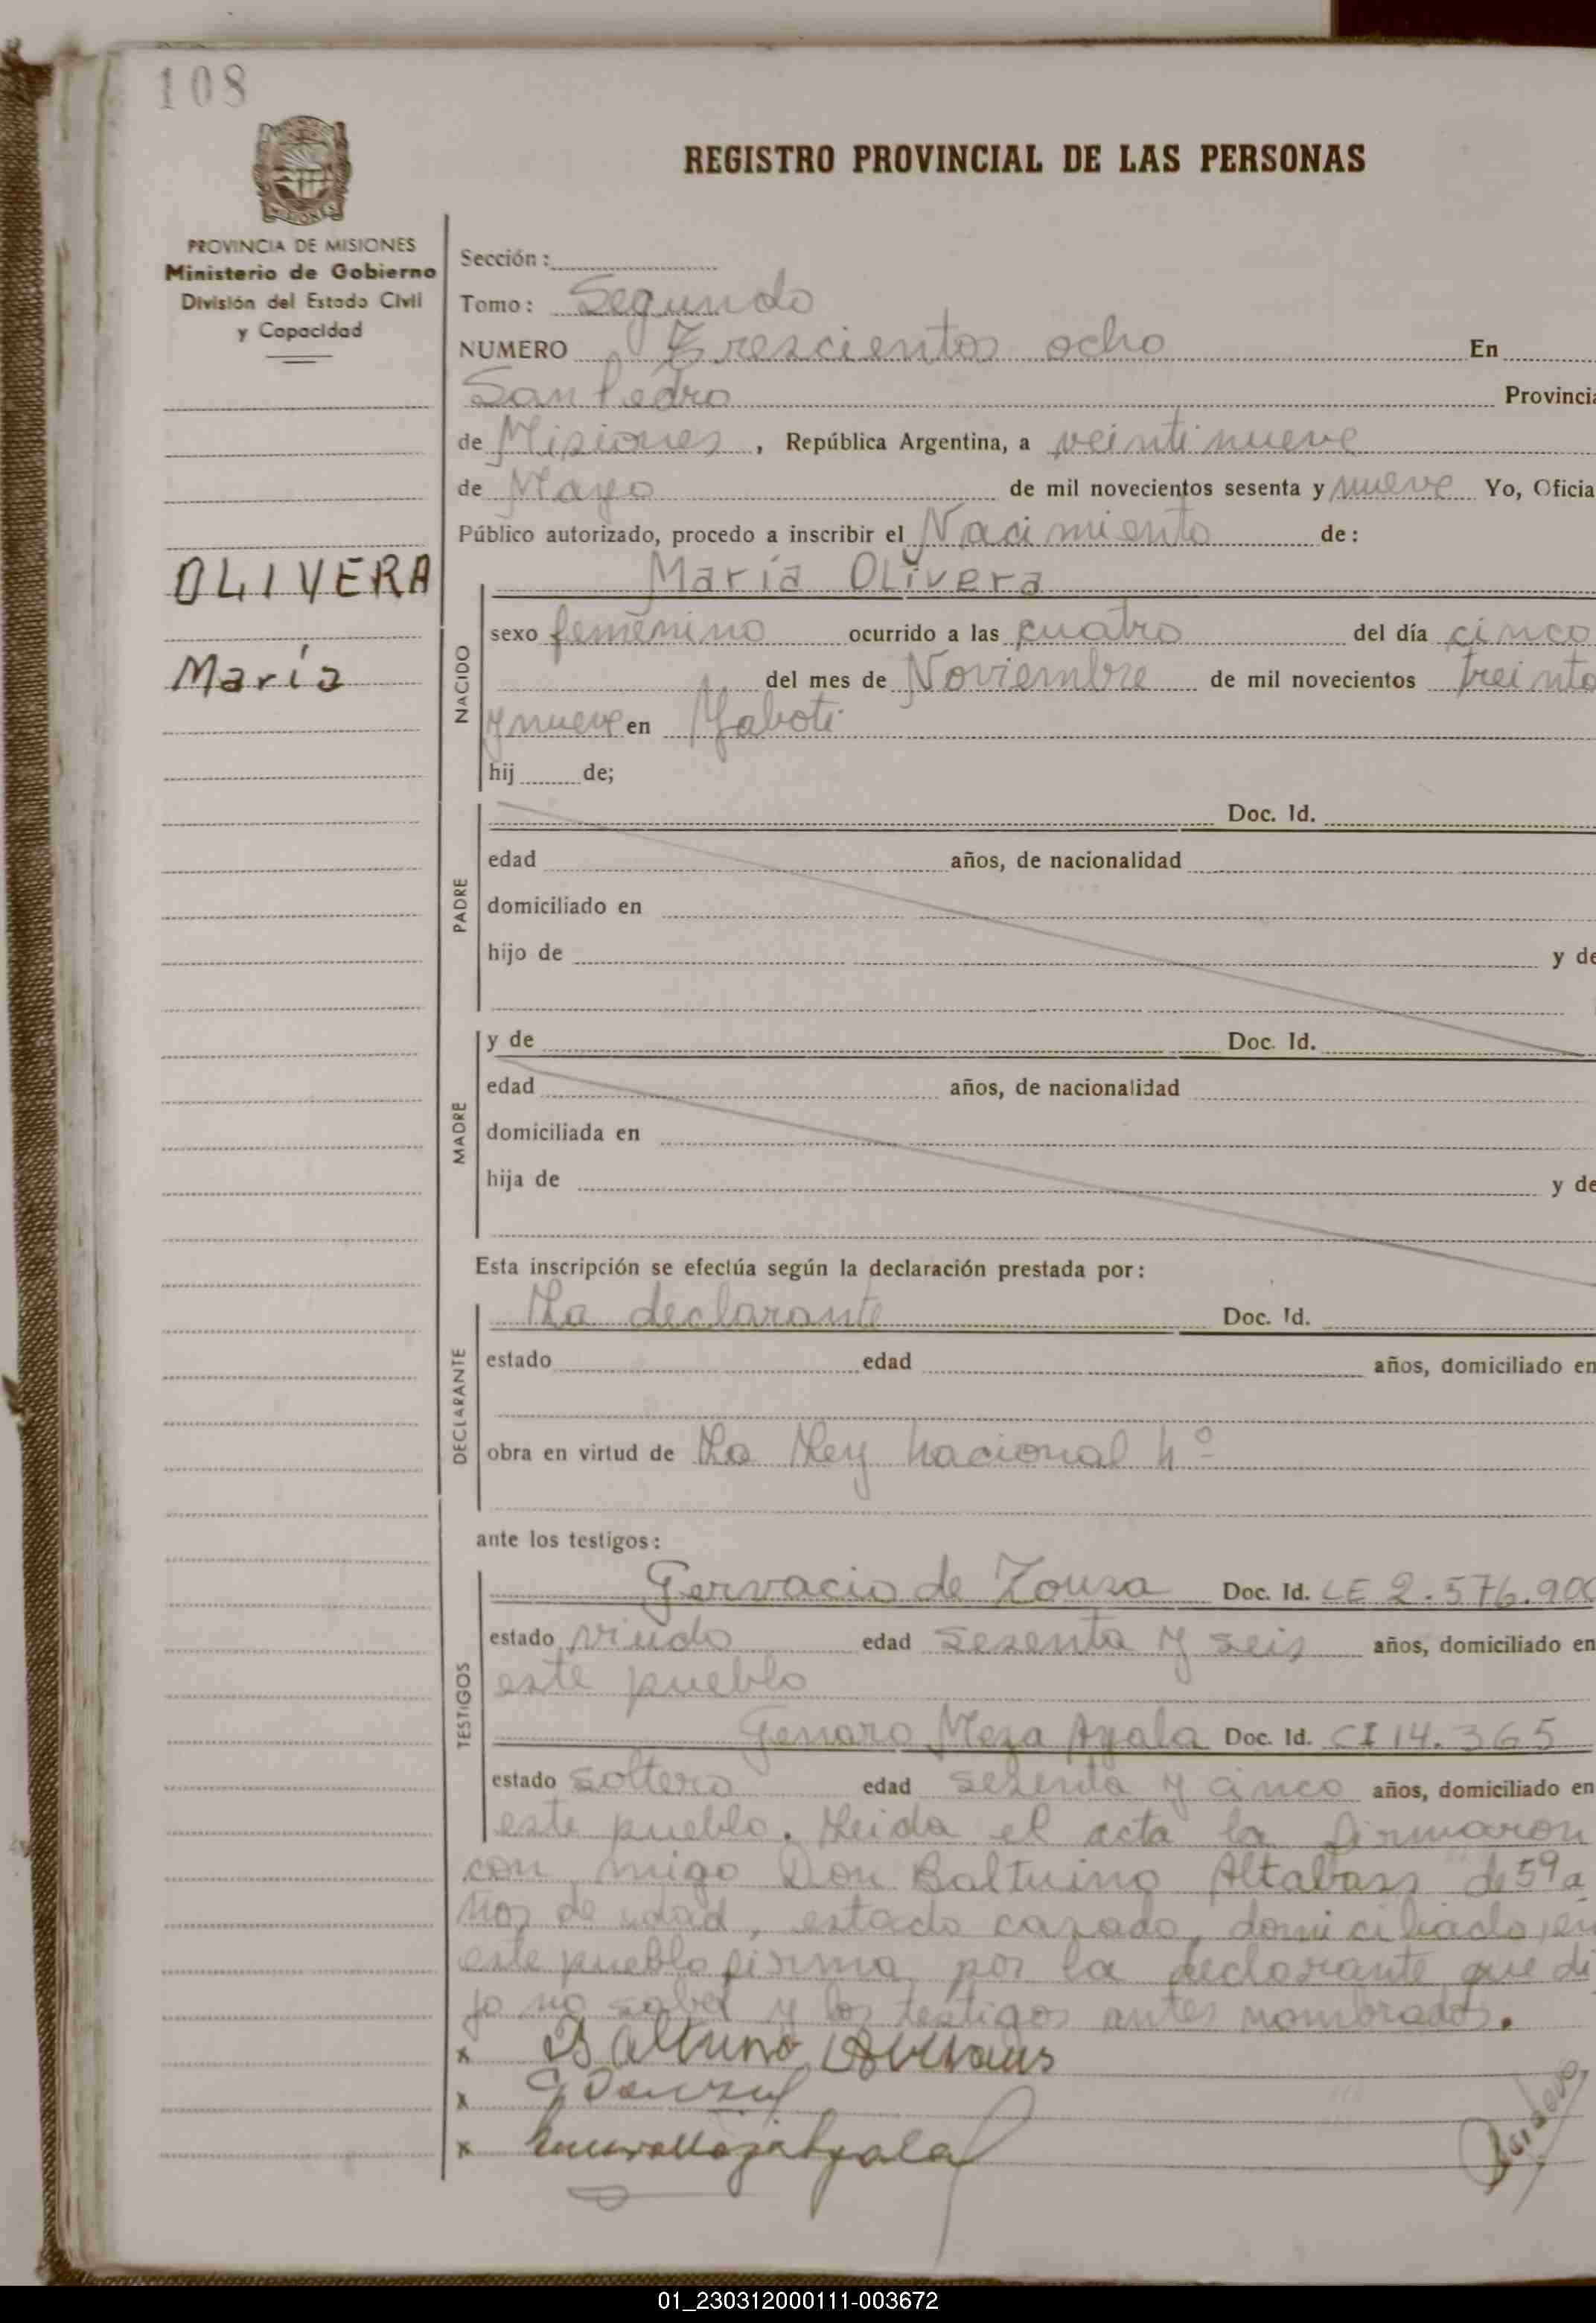 108
MISIONES
PROVINCIA DE MISIONES
Ministerio de Gobierno
División del Estado Civil
y Capacidad
OLIVERA
María
REGISTRO PROVINCIAL DE LAS PERSONAS
Sección :
Tomo : Segundo
NUMERO Trescientos ocho En
San Pedro Provincia
de Misiones , República Argentina, a veintinueve
de Mayo de mil novecientos sesenta y nueve Yo, Oficia
Público autorizado, procedo a inscribir el Nacimiento de :
NACIDO
María Olivera
sexo femenino ocurrido a las cuatro del día cinco
del mes de Noviembre de mil novecientos treinta
y nueve en Yaboti
hij de;
PADRE
Doc. Id.
edad años, de nacionalidad
domiciliado en
hijo de y de
MADRE
y de Doc. Id.
edad años, de nacionalidad
domiciliada en
hija de y de
Esta inscripción se efectúa según la declaración prestada por :
DECLARANTE
La declarante Doc. Id.
estado edad años, domiciliado en
obra en virtud de La Ley Nacional Nº
ante los testigos :
TESTIGOS
Gervacio de Zouza Doc. Id. LE 2.576.90
estado viudo edad sesenta y seis años, domiciliado en
este pueblo
Genaro Meza Ayala Doc. Id. CI 14.365
estado soltero edad sesenta y cinco años, domiciliado en
este pueblo. Leida el acta la firmaron
con migo Don Baltuino de 59 a
ños de edad, estado casado, domiciliado en
este pueblo firma por la declarante que di
jo no saber y los testigos antes nombrados.
x Baltuino
x
x Genaro Meza Ayala
01_230312000111-003672